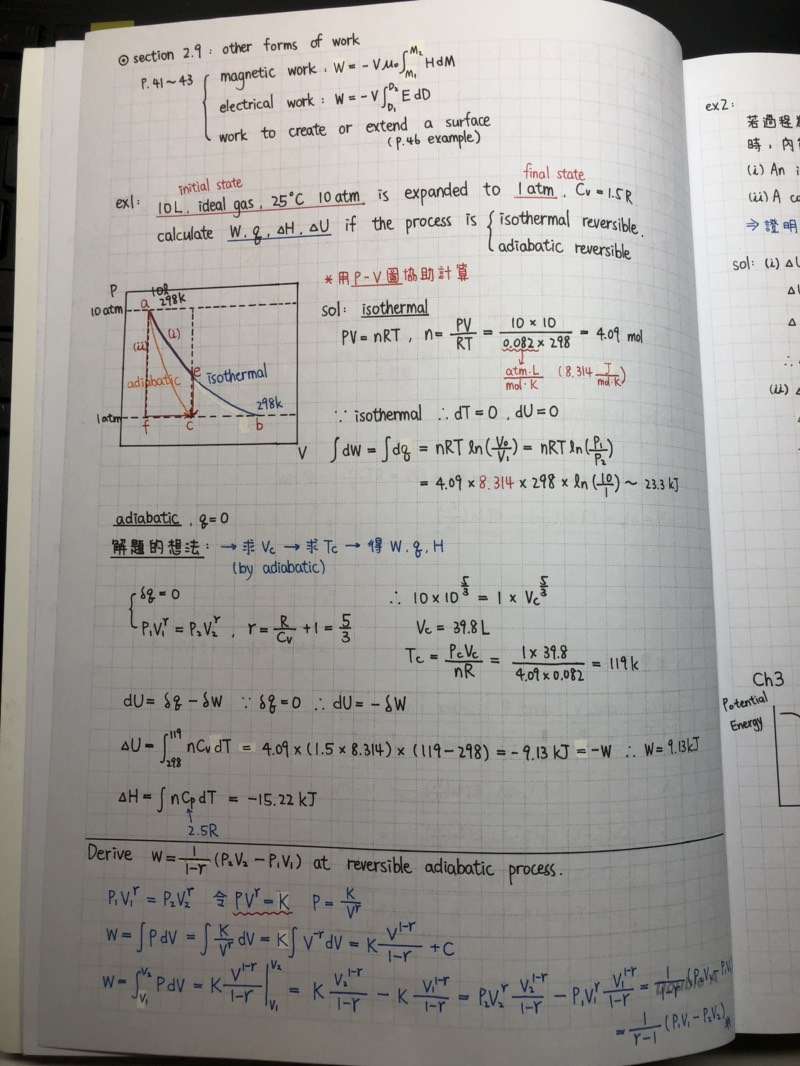 ⊙ section 2.9 : other forms of work
P.41~43 { magnetic work : W = -Vμ₀∫_{M₁}^{M₂} HdM
electrical work : W = -V∫_{D₁}^{D₂} EdD
work to create or extend a surface
(P.46 example)
initial state final state
ex1: 10L, ideal gas, 25°C 10 atm, is expanded to 1 atm, Cv = 1.5R
calculate W, q, ΔH, ΔU if the process is { isothermal reversible.
adiabatic reversible
P
10ℓ
298k
10 atm
a
(i)
(ii)
e
adiabatic
isothermal
298k
1 atm
f c b
V
*用P-V圖協助計算
sol: isothermal
PV = nRT, n = PV/RT = 10×10/0.082×298 = 4.09 mol
atm·L/mol·K (8.314 J/mol·K)
∵ isothermal ∴ dT = 0, dU = 0
∫dW = ∫dq = nRT ln(V₂/V₁) = nRT ln(P₁/P₂)
= 4.09 × 8.314 × 298 × ln(10/1) ~ 23.3 kJ
adiabatic, q=0
解題的想法: → 求 Vc → 求 Tc → 得 W, q, H
(by adiabatic)
{ δq = 0
P₁V₁^r = P₂V₂^r, r = R/Cv + 1 = 5/3
∴ 10×10^{5/3} = 1 × Vc^{5/3}
Vc = 39.8 L
Tc = PcVc/nR = 1×39.8/4.09×0.082 = 119k
dU = δq - δW ∵ δq = 0 ∴ dU = -δW
ΔU = ∫_{298}^{119} nCv dT = 4.09 × (1.5 × 8.314) × (119-298) = -9.13 kJ = -W ∴ W = 9.13kJ
ΔH = ∫ nCp dT = -15.22 kJ
2.5R
Derive W = 1/1-r (P₂V₂ - P₁V₁) at reversible adiabatic process.
P₁V₁^r = P₂V₂^r 令 PV^r = K P = K/V^r
W = ∫PdV = ∫ K/V^r dV = K∫ V^{-r} dV = K V^{1-r}/1-r + C
W = ∫_{V₁}^{V₂} PdV = K V^{1-r}/1-r |_{V₁}^{V₂} = K V₂^{1-r}/1-r - K V₁^{1-r}/1-r = P₂V₂^r V₂^{1-r}/1-r - P₁V₁^r V₁^{1-r}/1-r = 1/1-r
= 1/r-1 (P₁V₁ - P₂V₂)
ex2:
若過程
時, 內
(i) An i
(ii) A co
⇒ 證明
sol: (i) ΔU
(ii)
Ch3
Potential
Energy